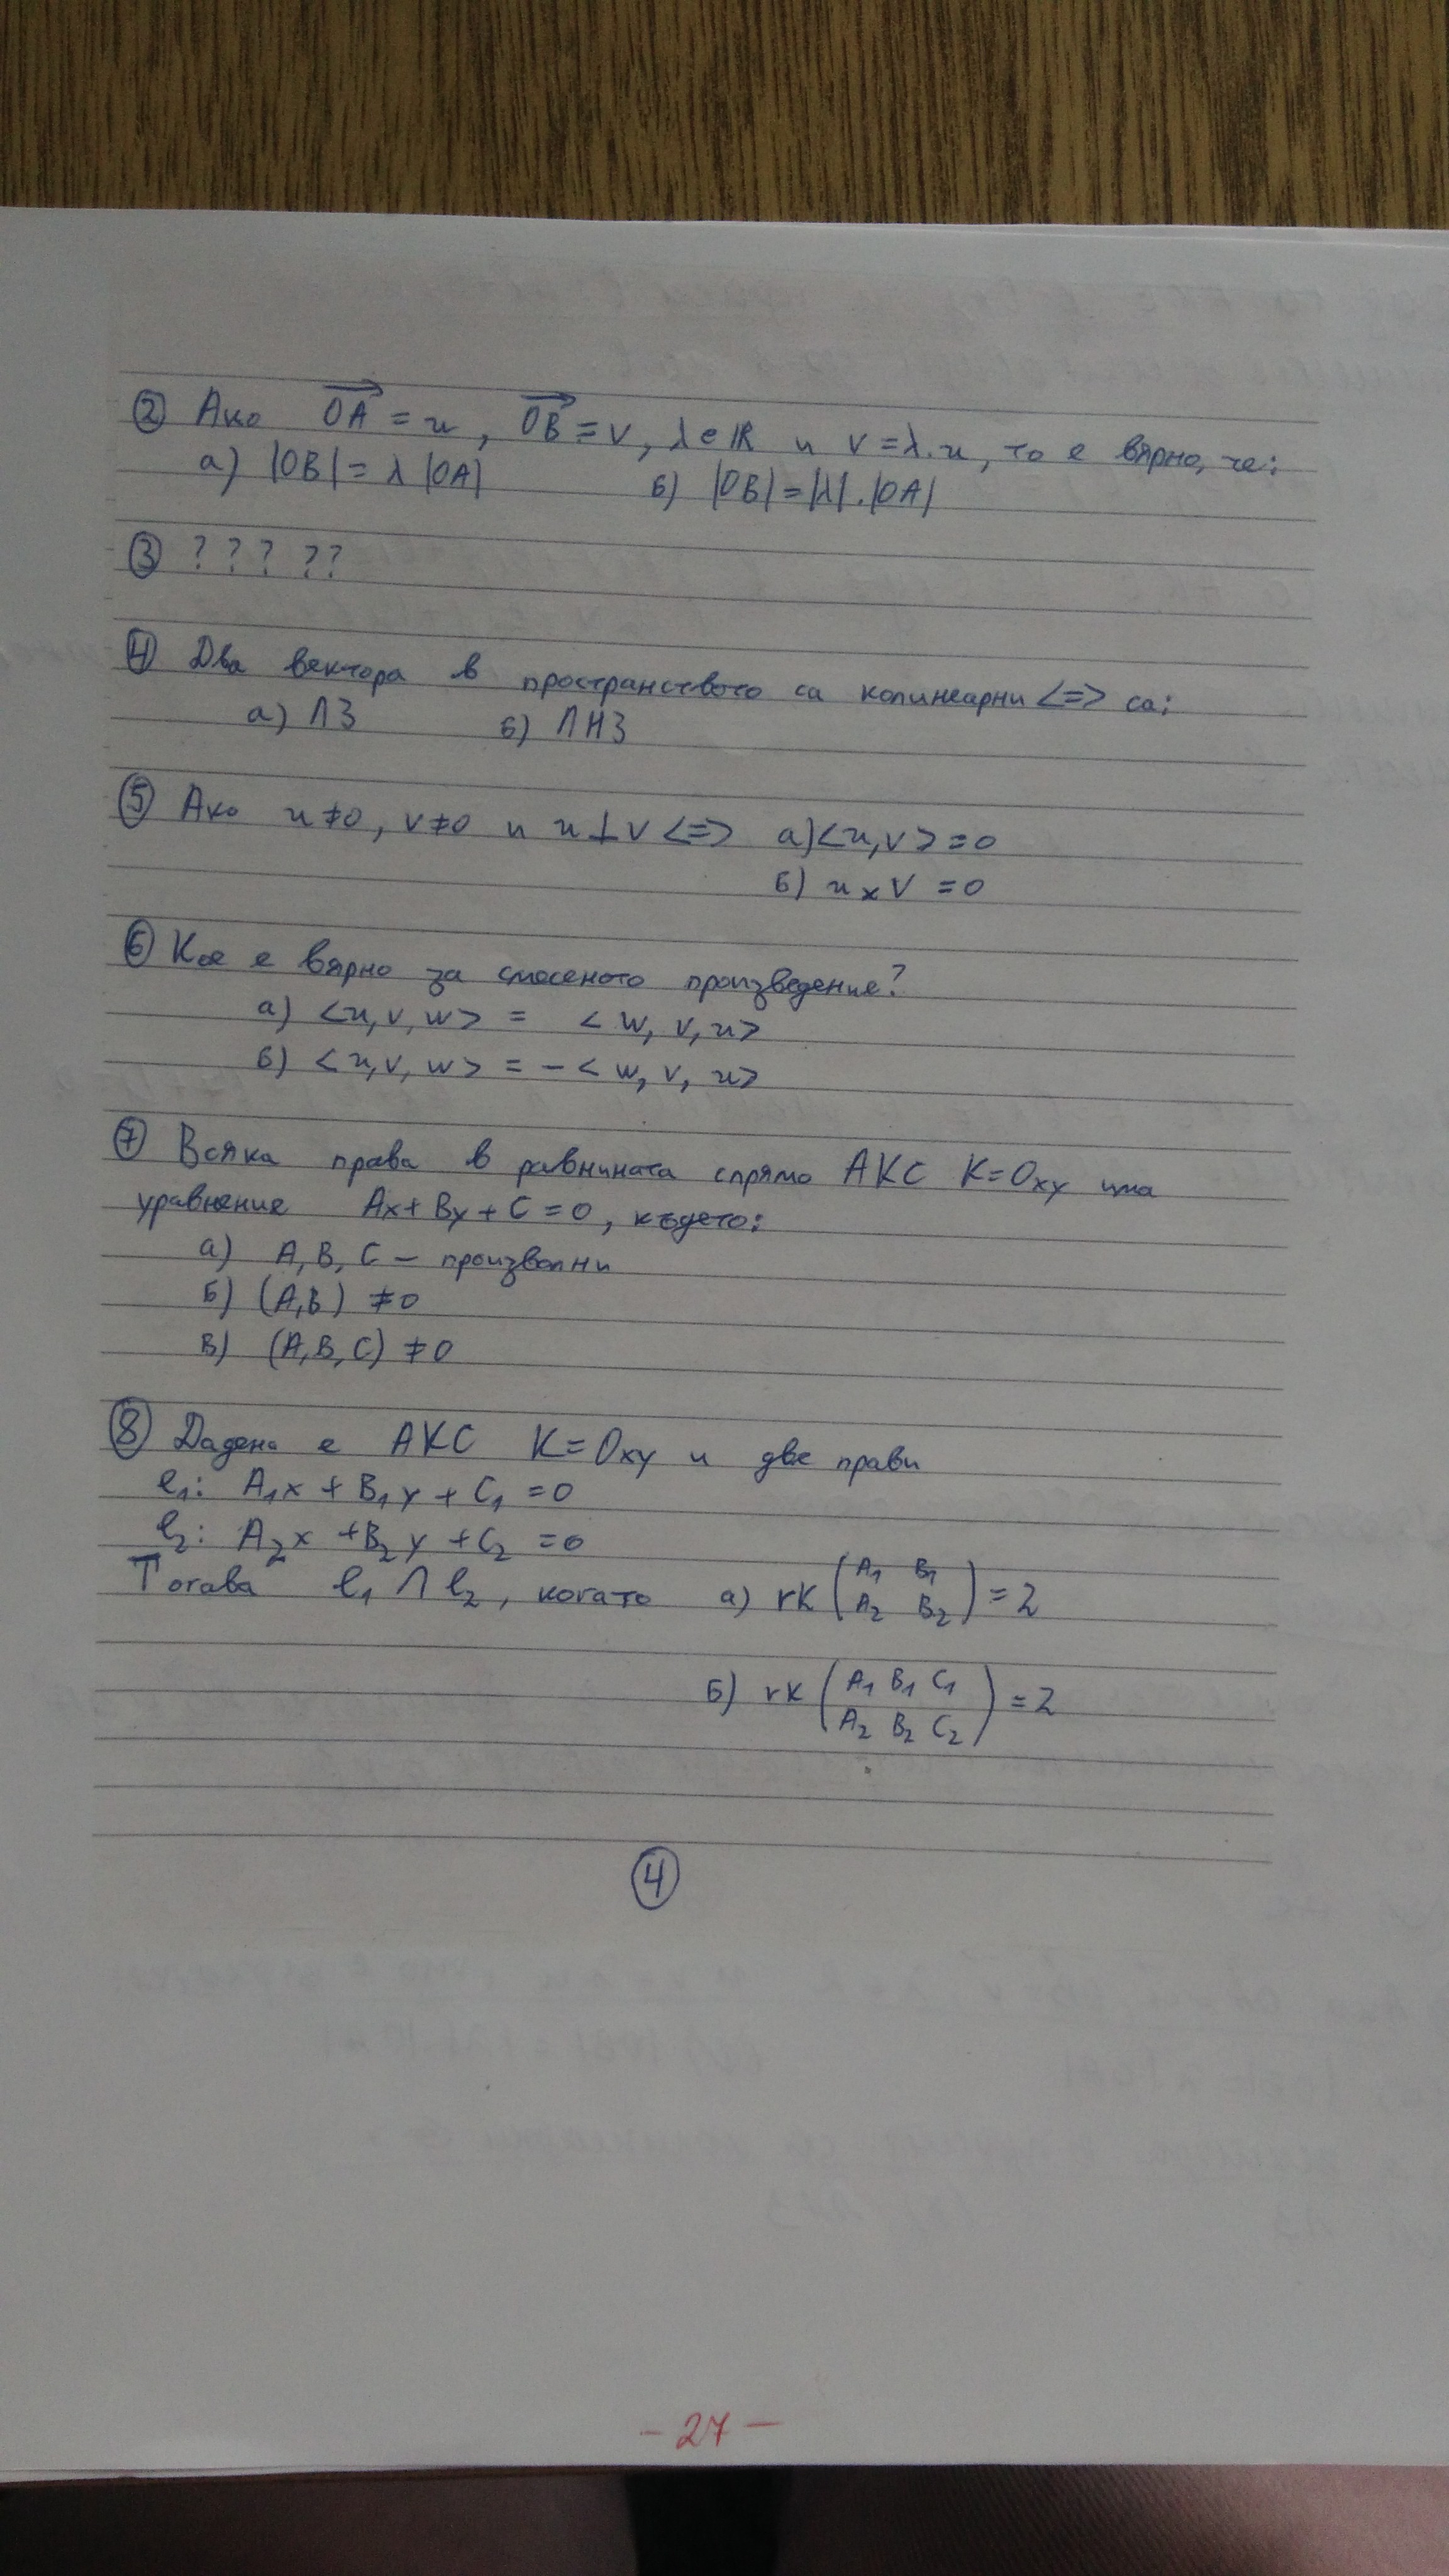 ② Ако OA→ = u, OB→ = v, λ ∈ ℝ и v = λ.u, то е вярно, че:
а) |OB| = λ |OA| б) |OB| = |λ|.|OA|
③ ? ? ? ? ?
④ Два вектора в пространството са колинеарни <=> са:
а) ЛЗ б) ЛНЗ
⑤ Ако u ≠ 0, v ≠ 0 и u ⊥ v <=> а) <u,v> = 0
б) u × v = 0
⑥ Кое е вярно за смесеното произведение?
а) <u, v, w> = <w, v, u>
б) <u, v, w> = - <w, v, u>
⑦ Всяка права в равнината спрямо АКС K=Oxy има
уравнение Ax + By + C = 0, където:
а) A, B, C – произволни
б) (A,B) ≠ 0
в) (A, B, C) ≠ 0
⑧ Дадена е АКС K=Oxy и две прави
l₁: A₁x + B₁y + C₁ = 0
l₂: A₂x + B₂y + C₂ = 0
Тогава l₁ ∩ l₂, когато а) rk (A₁ B₁
A₂ B₂) = 2
б) rk (A₁ B₁ C₁
A₂ B₂ C₂) = 2
④
- 27 -